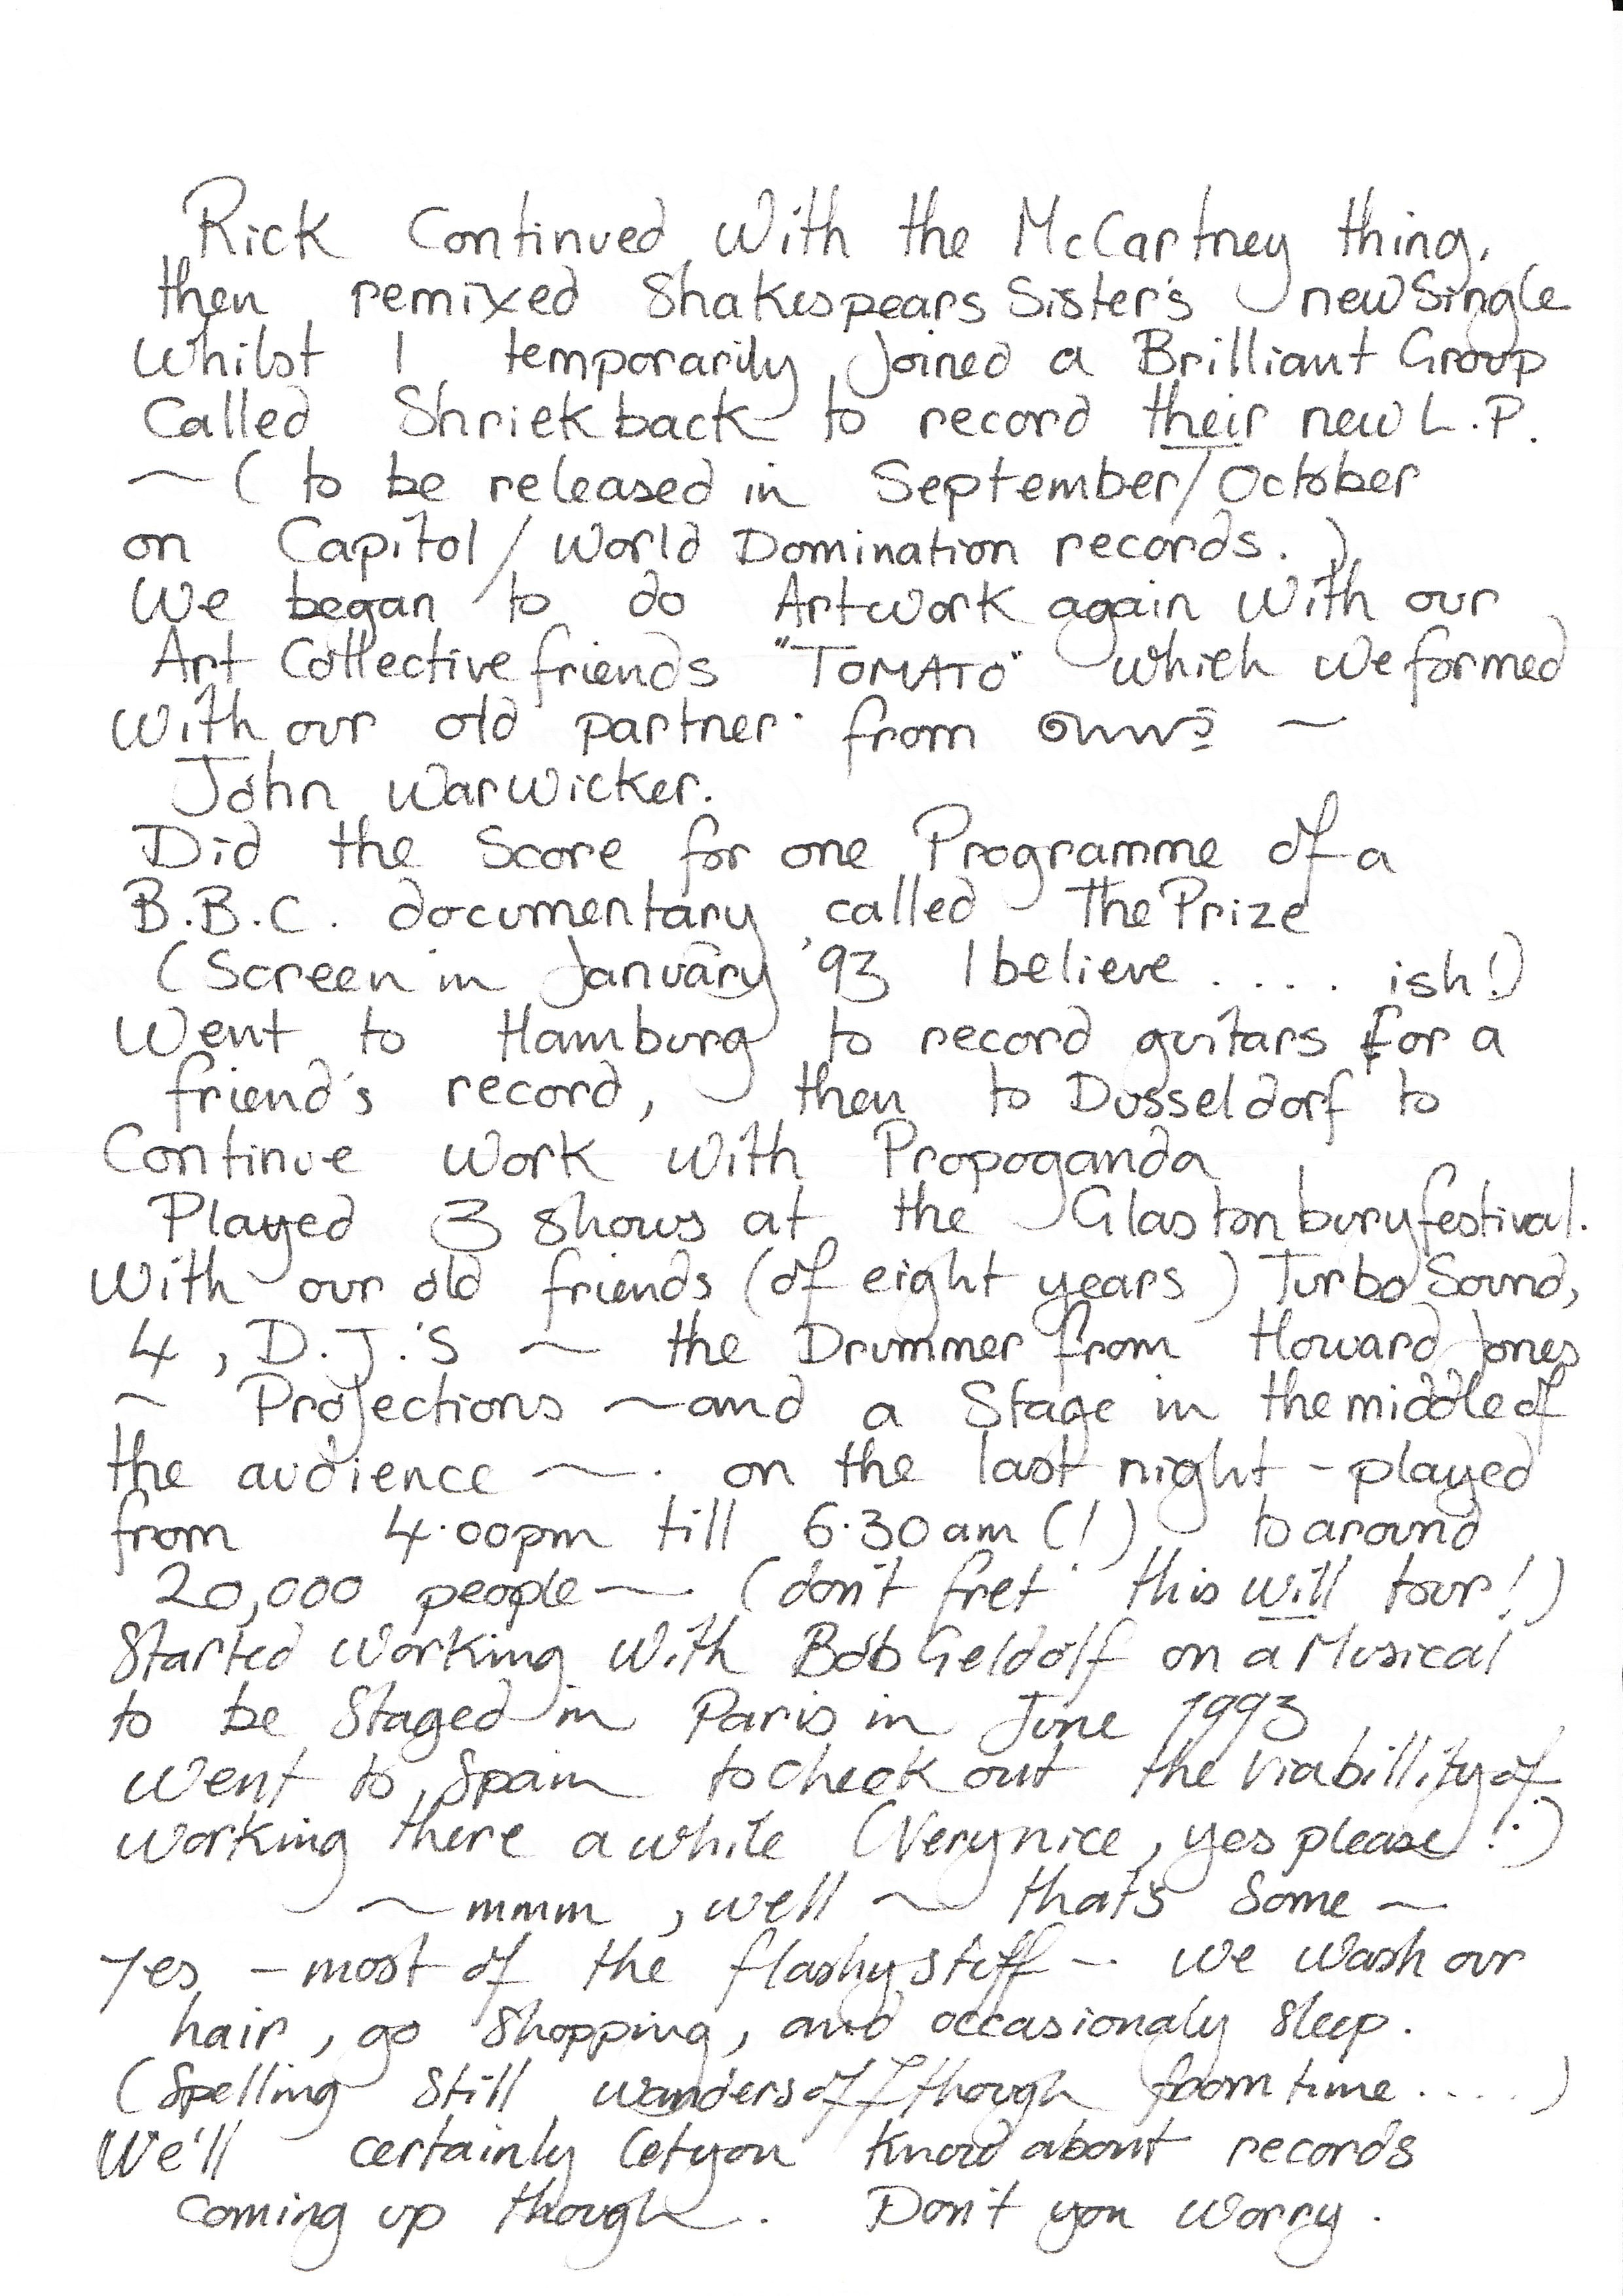 Rick Continued With the McCartney thing,
then remixed Shakespears Sister's new Single
Whilst I temporarily Joined a Brilliant Group
Called Shriekback to record their new L.P.
~ ( to be released in September/October
on Capitol / World Domination records. )
We began to do Artwork again With our
Art Collective friends "TOMATO" which we formed
With our old partner from ~
John Warwicker.
Did the Score for one Programme of a
B.B.C. documentary called The Prize
(Screen in January '93 I believe .... ish!)
Went to Hamburg to record guitars for a
friend's record, then to Dusseldorf to
Continue work with Propoganda
Played 3 shows at the Glastonbury festival.
With our old friends (of eight years) Turbo Sound,
4, D.J.'S ~ the Drummer from Howard Jones
~ Projections ~ and a Stage in the middle of
the audience ~. on the last night - played
from 4.00pm till 6.30am (!) to around
20,000 people ~ (don't fret this will tour!)
Started Working With Bob Geldolf on a Musical
to be Staged in Paris in June 1993
Went to Spain to check out the viabillity of
working there a while (Very nice, yes please!.)
~ mmm, well ~ that's Some ~
Yes - most of the flashy stuff - we wash our
hair, go Shopping, and occasionaly sleep.
(Spelling Still wanders off though from time ....)
We'll certainly let you know about records
coming up though. Don't you worry.